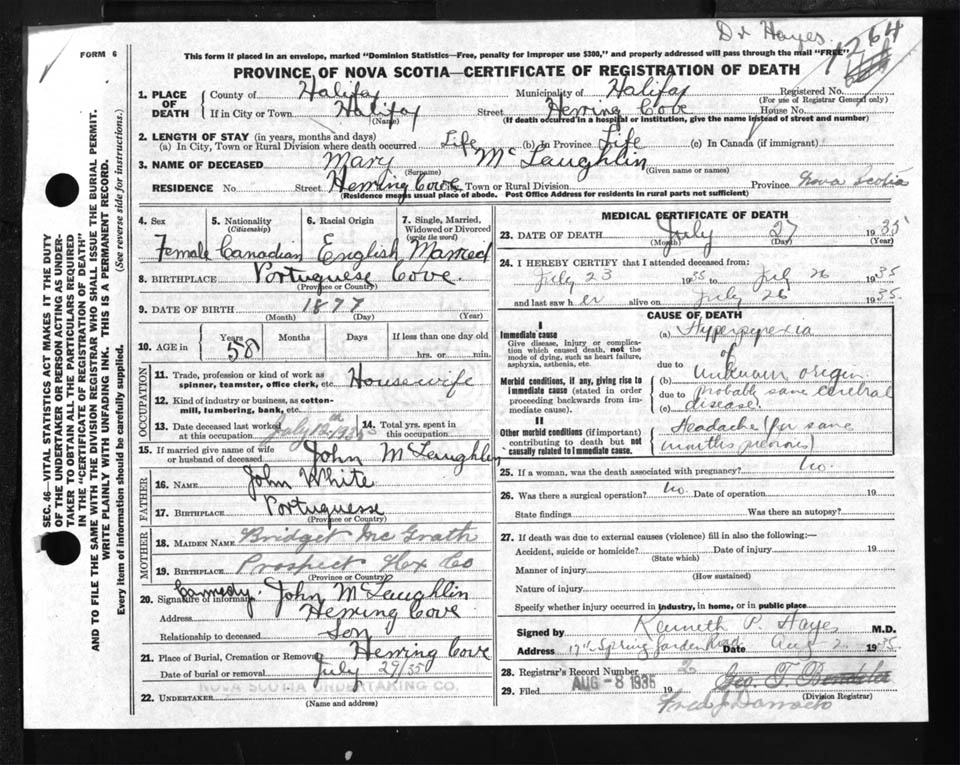 Dr Hayes.
264
FORM 6
This form if placed in an envelope, marked "Dominion Statistics—Free, penalty for improper use $300," and properly addressed will pass through the mail "FREE"
PROVINCE OF NOVA SCOTIA—CERTIFICATE OF REGISTRATION OF DEATH
1. PLACE OF DEATH { County of Halifax Municipality of Halifax Registered No.
(For use of Registrar General only)
If in City or Town Halifax Street Herring Cove House No.
(Name) (If death occurred in a hospital or institution, give the name instead of street and number)
2. LENGTH OF STAY (in years, months and days)
(a) In City, Town or Rural Division where death occurred Life (b) In Province Life (c) In Canada (if immigrant)
3. NAME OF DECEASED Mary McLaughlin
(Surname) (Given name or names)
RESIDENCE No. Street Herring Cove City, Town or Rural Division Province Nova Scotia
(Residence means usual place of abode. Post Office Address for residents in rural parts not sufficient)
4. Sex 5. Nationality (Citizenship) 6. Racial Origin 7. Single, Married, Widowed or Divorced (write the word)
Female Canadian English Married
8. BIRTHPLACE Portuguese Cove.
(Province or Country)
9. DATE OF BIRTH 1877
(Month) (Day) (Year)
10. AGE in { Years Months Days If less than one day old
58 hrs. or min.
OCCUPATION
11. Trade, profession or kind of work as spinner, teamster, office clerk, etc. Housewife
12. Kind of industry or business, as cotton-mill, lumbering, bank, etc.
13. Date deceased last worked at this occupation July 12th 1935 14. Total yrs. spent in this occupation
15. If married give name of wife or husband of deceased John McLaughlin
FATHER
16. NAME John White
17. BIRTHPLACE Portuguese
(Province or Country)
MOTHER
18. MAIDEN NAME Bridget McGrath
19. BIRTHPLACE Prospect Hx Co
(Province or Country)
20. Signature of informant John McLaughlin
Address Herring Cove
Relationship to deceased Son
21. Place of Burial, Cremation or Removal Herring Cove
Date of burial or removal July 29/35
22. UNDERTAKER NOVA SCOTIA UNDERTAKING CO.
(Name and address)
MEDICAL CERTIFICATE OF DEATH
23. DATE OF DEATH July 27 1935
(Month) (Day) (Year)
24. I HEREBY CERTIFY that I attended deceased from:
July 23 1935 to July 26 1935
and last saw h er alive on July 26 1935.
CAUSE OF DEATH
I
Immediate cause
Give disease, injury or complication which caused death, not the mode of dying, such as heart failure, asphyxia, asthenia, etc.
(a) Hyperpyrexia
of
due to
Morbid conditions, if any, giving rise to immediate cause (stated in order proceeding backwards from immediate cause).
(b) Unknown origin
due to probably some cerebral
(c) disease.
II
Other morbid conditions (if important) contributing to death but not causally related to immediate cause.
Headache (for some
months previous)
25. If a woman, was the death associated with pregnancy? No.
26. Was there a surgical operation? No. Date of operation 19
State findings Was there an autopsy?
27. If death was due to external causes (violence) fill in also the following:—
Accident, suicide or homicide? Date of injury 19
(State which)
Manner of injury
(How sustained)
Nature of injury
Specify whether injury occurred in industry, in home, or in public place
Signed by Kenneth P. Hayes M.D.
Address Spring Garden Road Date Aug 2 1935
28. Registrar's Record Number
29. Filed AUG - 8 1935 19 Geo. T.
(Division Registrar)
Fred J
SEC. 46—VITAL STATISTICS ACT MAKES IT THE DUTY
OF THE UNDERTAKER OR PERSON ACTING AS UNDER-
TAKER TO OBTAIN ALL THE PARTICULARS REQUIRED
IN THE "CERTIFICATE OF REGISTRATION OF DEATH"
AND TO FILE THE SAME WITH THE DIVISION REGISTRAR WHO SHALL ISSUE THE BURIAL PERMIT.
WRITE PLAINLY WITH UNFADING INK. THIS IS A PERMANENT RECORD.
Every item of information should be carefully supplied. (See reverse side for instructions.)